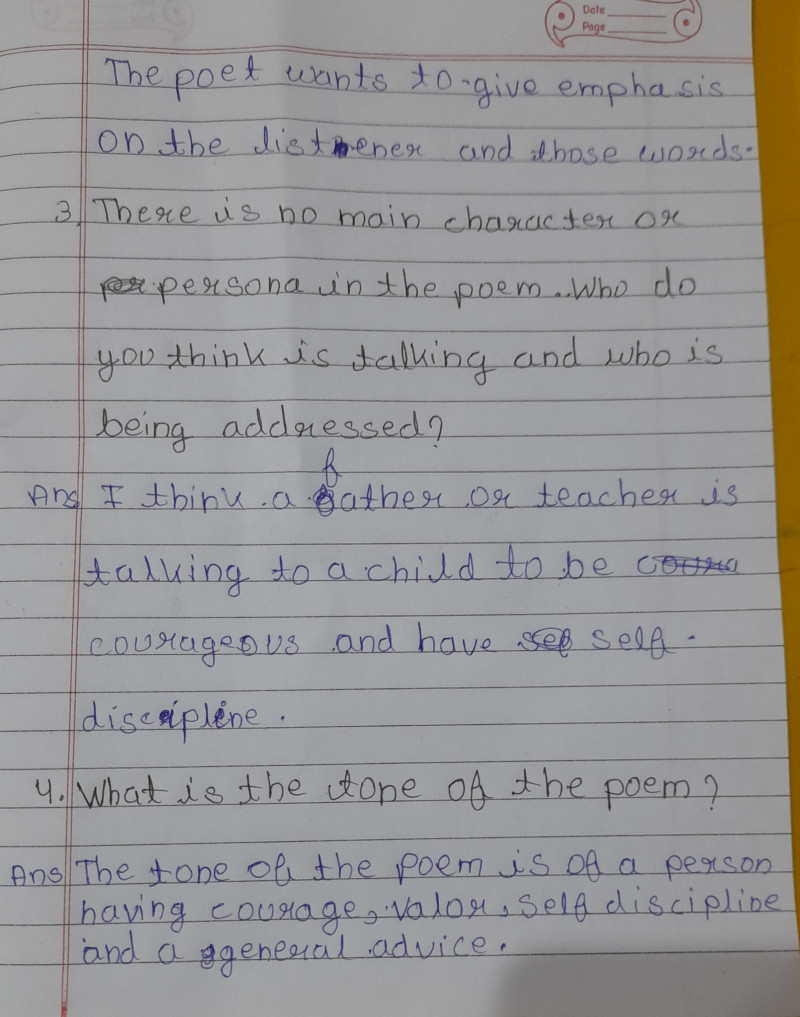 Date
Page
The poet wants to give emphasis
on the listener and those words.
3. There is no main character or
persona in the poem. Who do
you think is talking and who is
being addressed?
Ans I think a father or teacher is
talking to a child to be
courageous and have self-
discipline.
4. What is the tone of the poem?
Ans The tone of the poem is of a person
having courage, valor, self discipline
and a general advice.